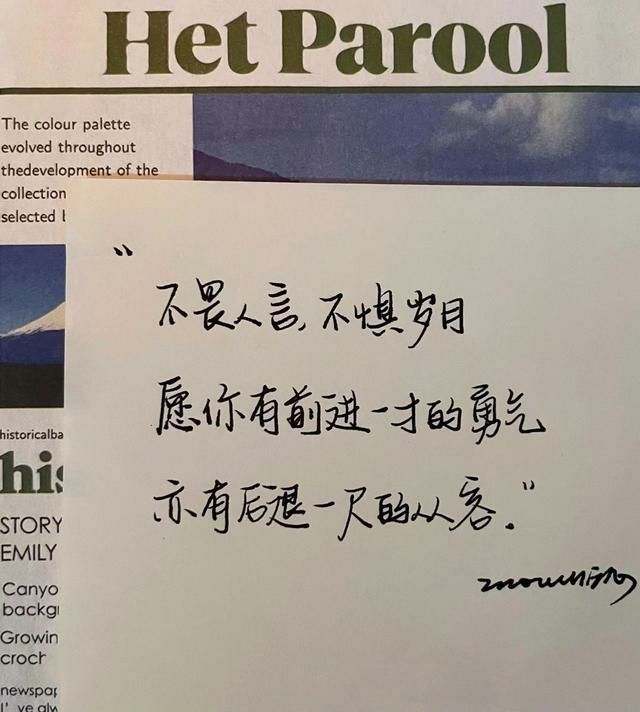 Het Parool
The colour palette
evolved throughout
thedevelopment of the
collection
selected
“
不畏人言,不惧岁月
愿你有前进一寸的勇气
亦有后退一尺的从容.”
historicalba
his
STORY
EMILY
Canyo
backgr
Growin
croch
newspap
I've alw